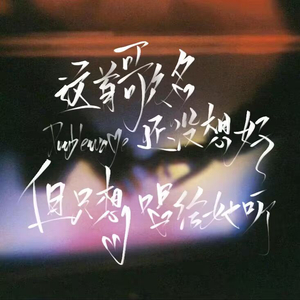 这首歌名
还没想好
但只想唱给她听